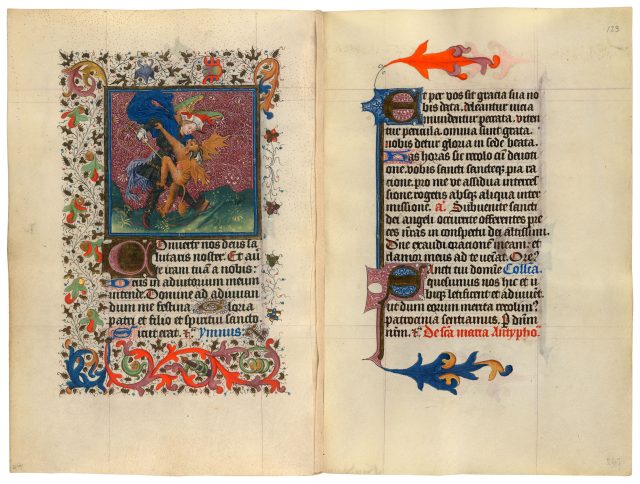 Convertte nos deus sa
lutaris noster. Et auer
te iram tuã a nobis:
Deus in adiutorium meum
intende. Domine ad adiuuan
dum me festina. Gloria
patri et filio et spiritui sancto
Sicut erat. &c. Ymnus:
123
Et per vos sit gracia sua no
bis data. deleantur uicia
mundentur peccata. viten
tur pericula. omnia sunt grata.
nobis detur gloria in sede beata.
Has horas sic recolo cũ deuoti
one. vobis sancti sancteq; pia ra
cione. pro me vt assidua interces
sione. rogetis absq; aliqua inter
missione. a. Subuenite sancti
dei angeli occurrite offerentes pre
ces nr̃as in conspectu dei altissimi.
Dñe exaudi oracionẽ meam: et
clamor meus ad te veniat. Ore?
Sancti tui domĩe Collca.
quesumus nos hic et u
biq; letificent et adiuuẽt.
ut dum eorum merita recolim?
patrocinia sentiamus. P dñm
nrm. &c. De scã maria Antypho.